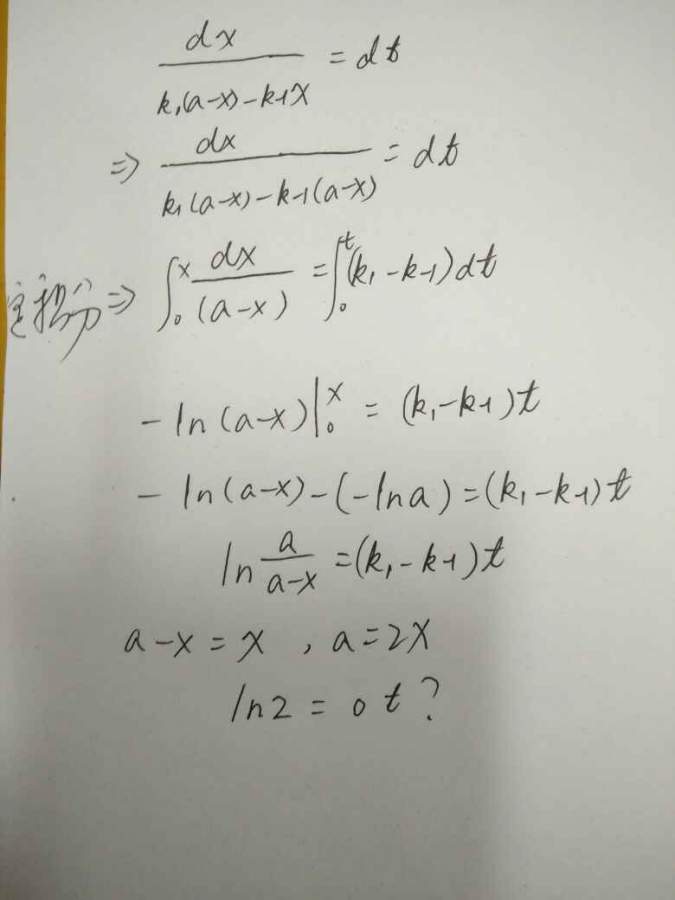 dx / k₁(a-x)-k-1x = dt
⇒ dx / k₁(a-x)-k-1(a-x) = dt
定积分⇒ ∫₀ˣ dx/(a-x) = ∫₀ᵗ (k₁-k-1)dt
-ln(a-x)|₀ˣ = (k₁-k-1)t
- ln(a-x)-(-lna)=(k₁-k-1)t
ln a/a-x =(k₁-k-1)t
a-x=x , a=2x
ln2 = 0t?